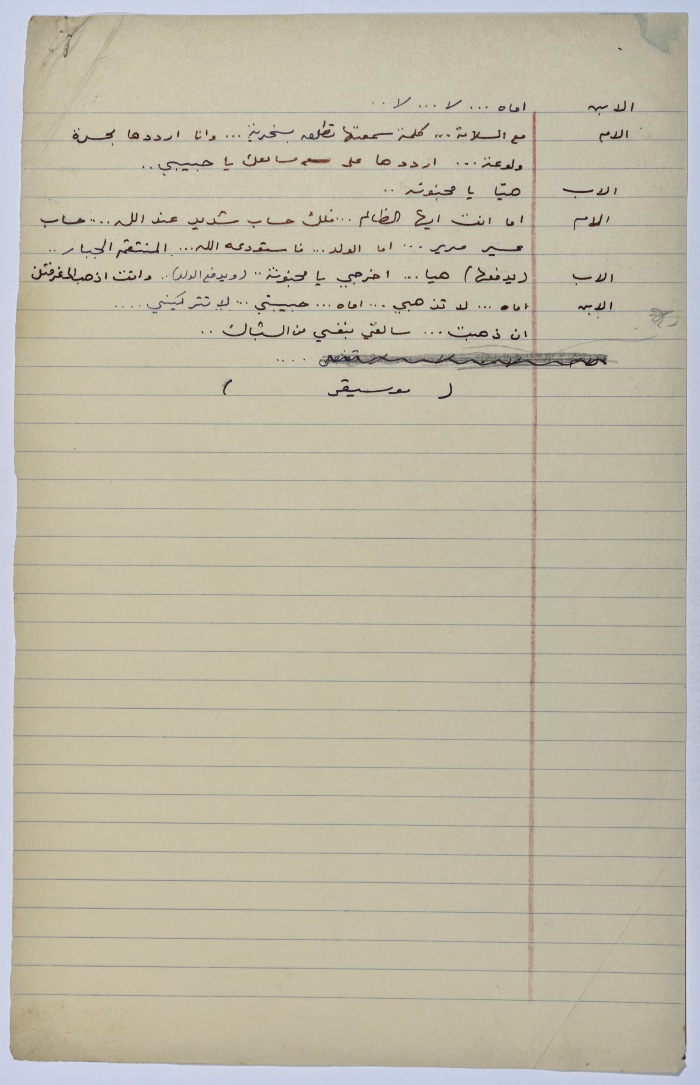 الابن اماه ... لا ... لا ..
الام مع السلامة ... كلمة سمعتها تطلقه بسخرية ... وانا ارددها بحسرة
ولوعة ... ارددها على مسامعك يا حبيبي ..
الاب هيّا يا مجنونه ..
الام اما انت ايها الظالم ... فلك حساب شديد عند الله ... حساب
عسير مرير ... اما الولد ... فاستودعه الله ... المنتقم الجبار ..
الاب (يدفعها) هيا ... اخرجي يا مجنونة .. (ويدفع الولد) .. وانت اذهب لغرفتك
الابن اماه ... لا تذهبي ... اماه ... حبيبتي ... لا تتركيني ....
ان ذهبت ... سالقي بنفسي من الشباك ..
( موسيقى )